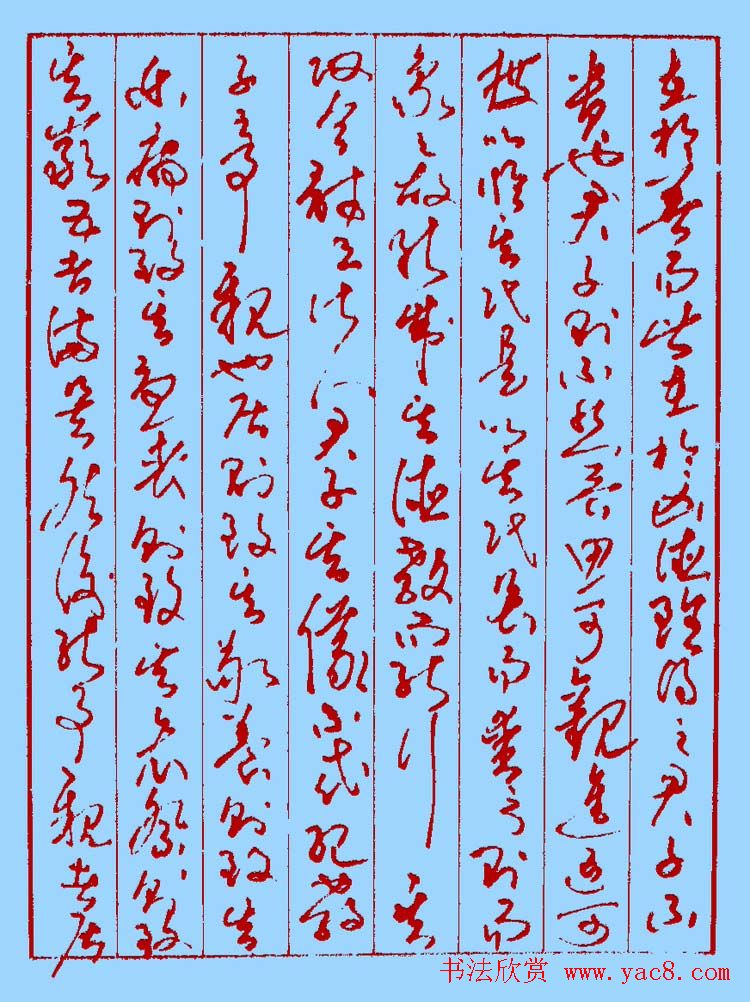 在於善而皆在於凶德雖得之君子不
貴也君子則不然言思可觀進退可
度以臨其民是以其民畏而愛之則而
象之故能成其德教而能行其
政令詩云淑人君子其儀不忒紀孝
子之事親也居則致其敬養則致其
樂病則致其憂喪則致其哀祭則致
其嚴五者備矣然後能事親者居
书法欣赏 www.yac8.com